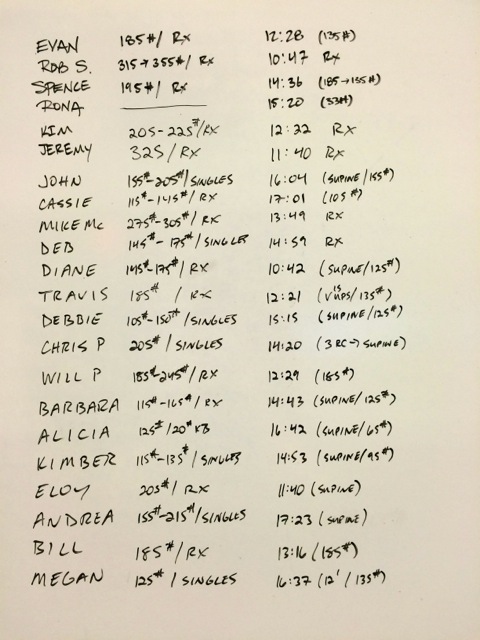 EVAN 185#/ RX 12:28 (135#)
ROB S. 315→355#/ RX 10:47 RX
SPENCE 195#/ RX 14:36 (185→135#)
RONA 15:20 (53#)
KIM 205-225#/RX 12:22 RX
JEREMY 325/RX 11:40 RX
JOHN 155#-205#/SINGLES 16:04 (SUPINE/155#)
CASSIE 115#-145#/RX 17:01 (105#)
MIKE Mc 275#-305#/RX 13:49 RX
DEB 145#-175#/SINGLES 14:59 RX
DIANE 145#-175#/RX 10:42 (SUPINE/125#)
TRAVIS 185# / RX 12:21 (V UPS/135#)
DEBBIE 105#-150#/SINGLES 15:15 (SUPINE/125#)
CHRIS P 205#/SINGLES 14:20 (3 RC→SUPINE)
WILL P 185#-245#/RX 12:29 (185#)
BARBARA 115#-165#/RX 14:43 (SUPINE/125#)
ALICIA 125#/20# KB 16:42 (SUPINE/65#)
KIMBER 115#-135#/SINGLES 14:53 (SUPINE/95#)
ELOY 205#/ RX 11:40 (SUPINE)
ANDREA 155#-215#/SINGLES 17:23 (SUPINE)
BILL 185#/RX 13:16 (185#)
MEGAN 125# / SINGLES 16:37 (12' / 135#)